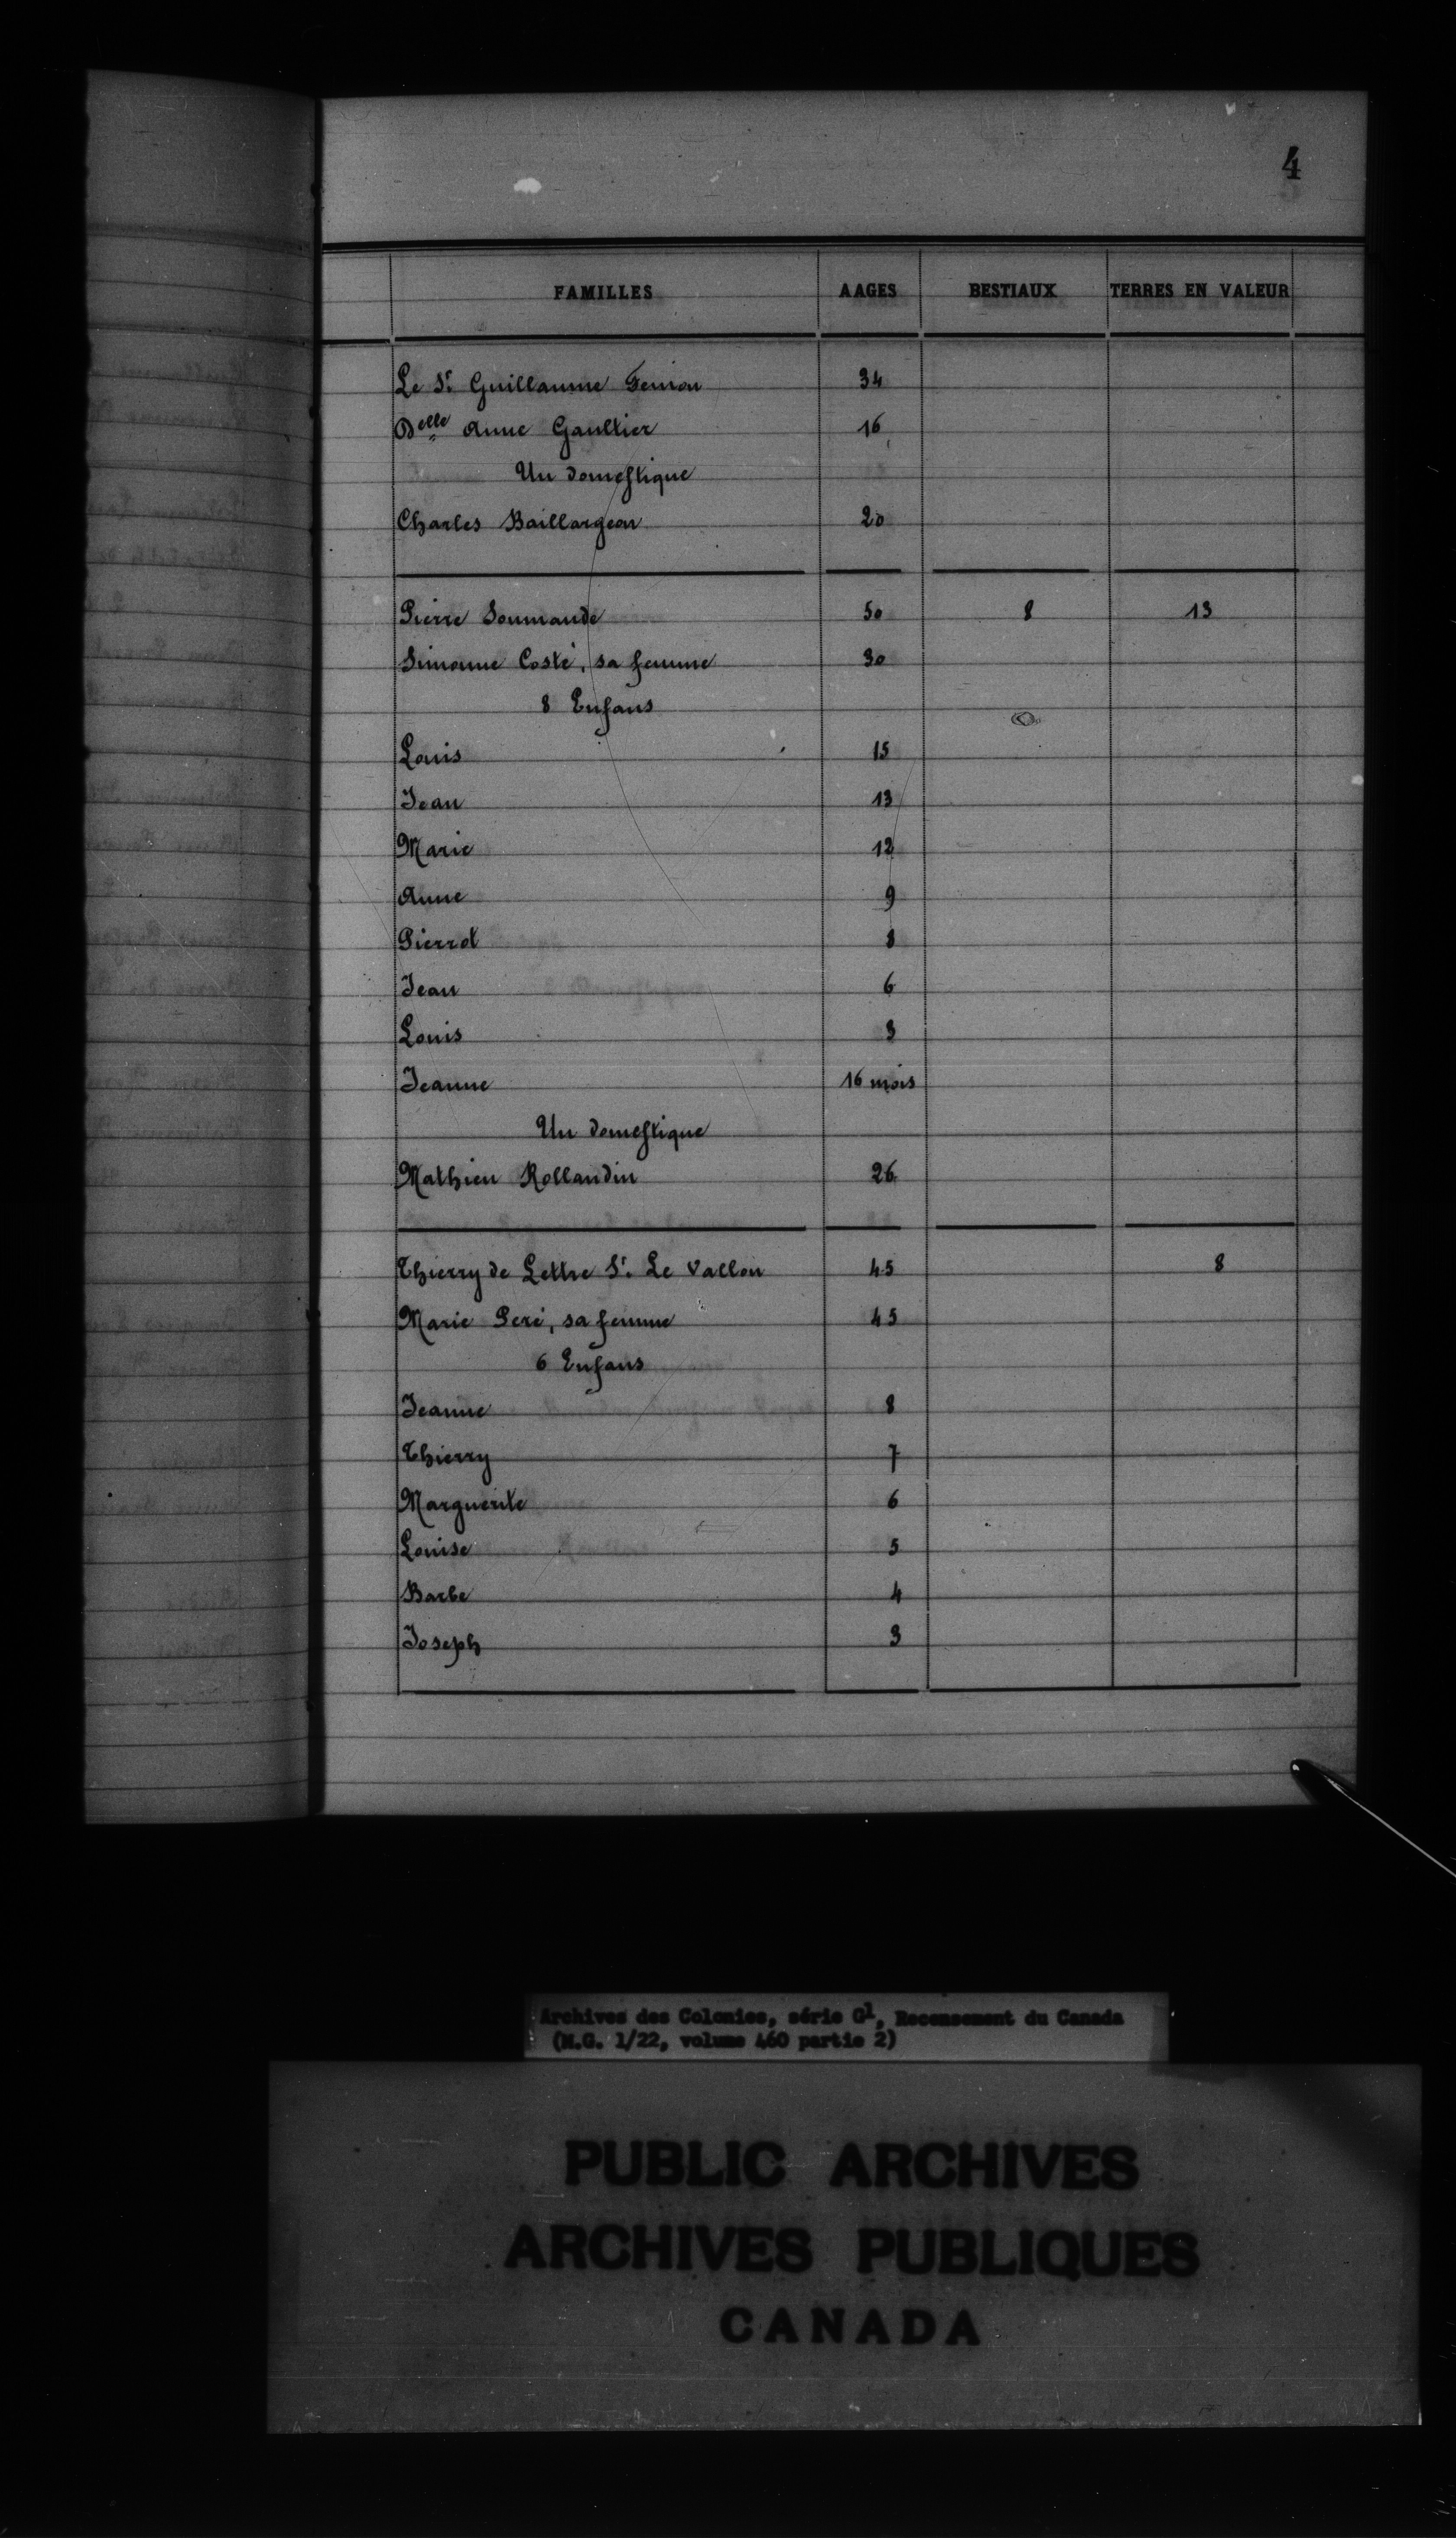 4
FAMILLES AAGES BESTIAUX TERRES EN VALEUR
Le Sr. Guillaume Feniou 34
Delle Anne Gaultier 16
Un domestique
Charles Baillargeon 20
Pierre Soumande 50 8 13
Simonne Costé, sa femme 30
8 Enfans
Louis 15
Jean 13
Marie 12
Anne 9
Pierrot 8
Jean 6
Louis 3
Jeanne 16 mois
Un domestique
Mathieu Rollandin 26
Thierry de Lettre Sr. Le Vallon 45 8
Marie Peré, sa femme 45
6 Enfans
Jeanne 8
Thierry 7
Marguerite 6
Louise 5
Barbe 4
Joseph 3
Archives des Colonies, série G1, Recensement du Canada
(M.G. 1/22, volume 460 partie 2)
PUBLIC ARCHIVES
ARCHIVES PUBLIQUES
CANADA